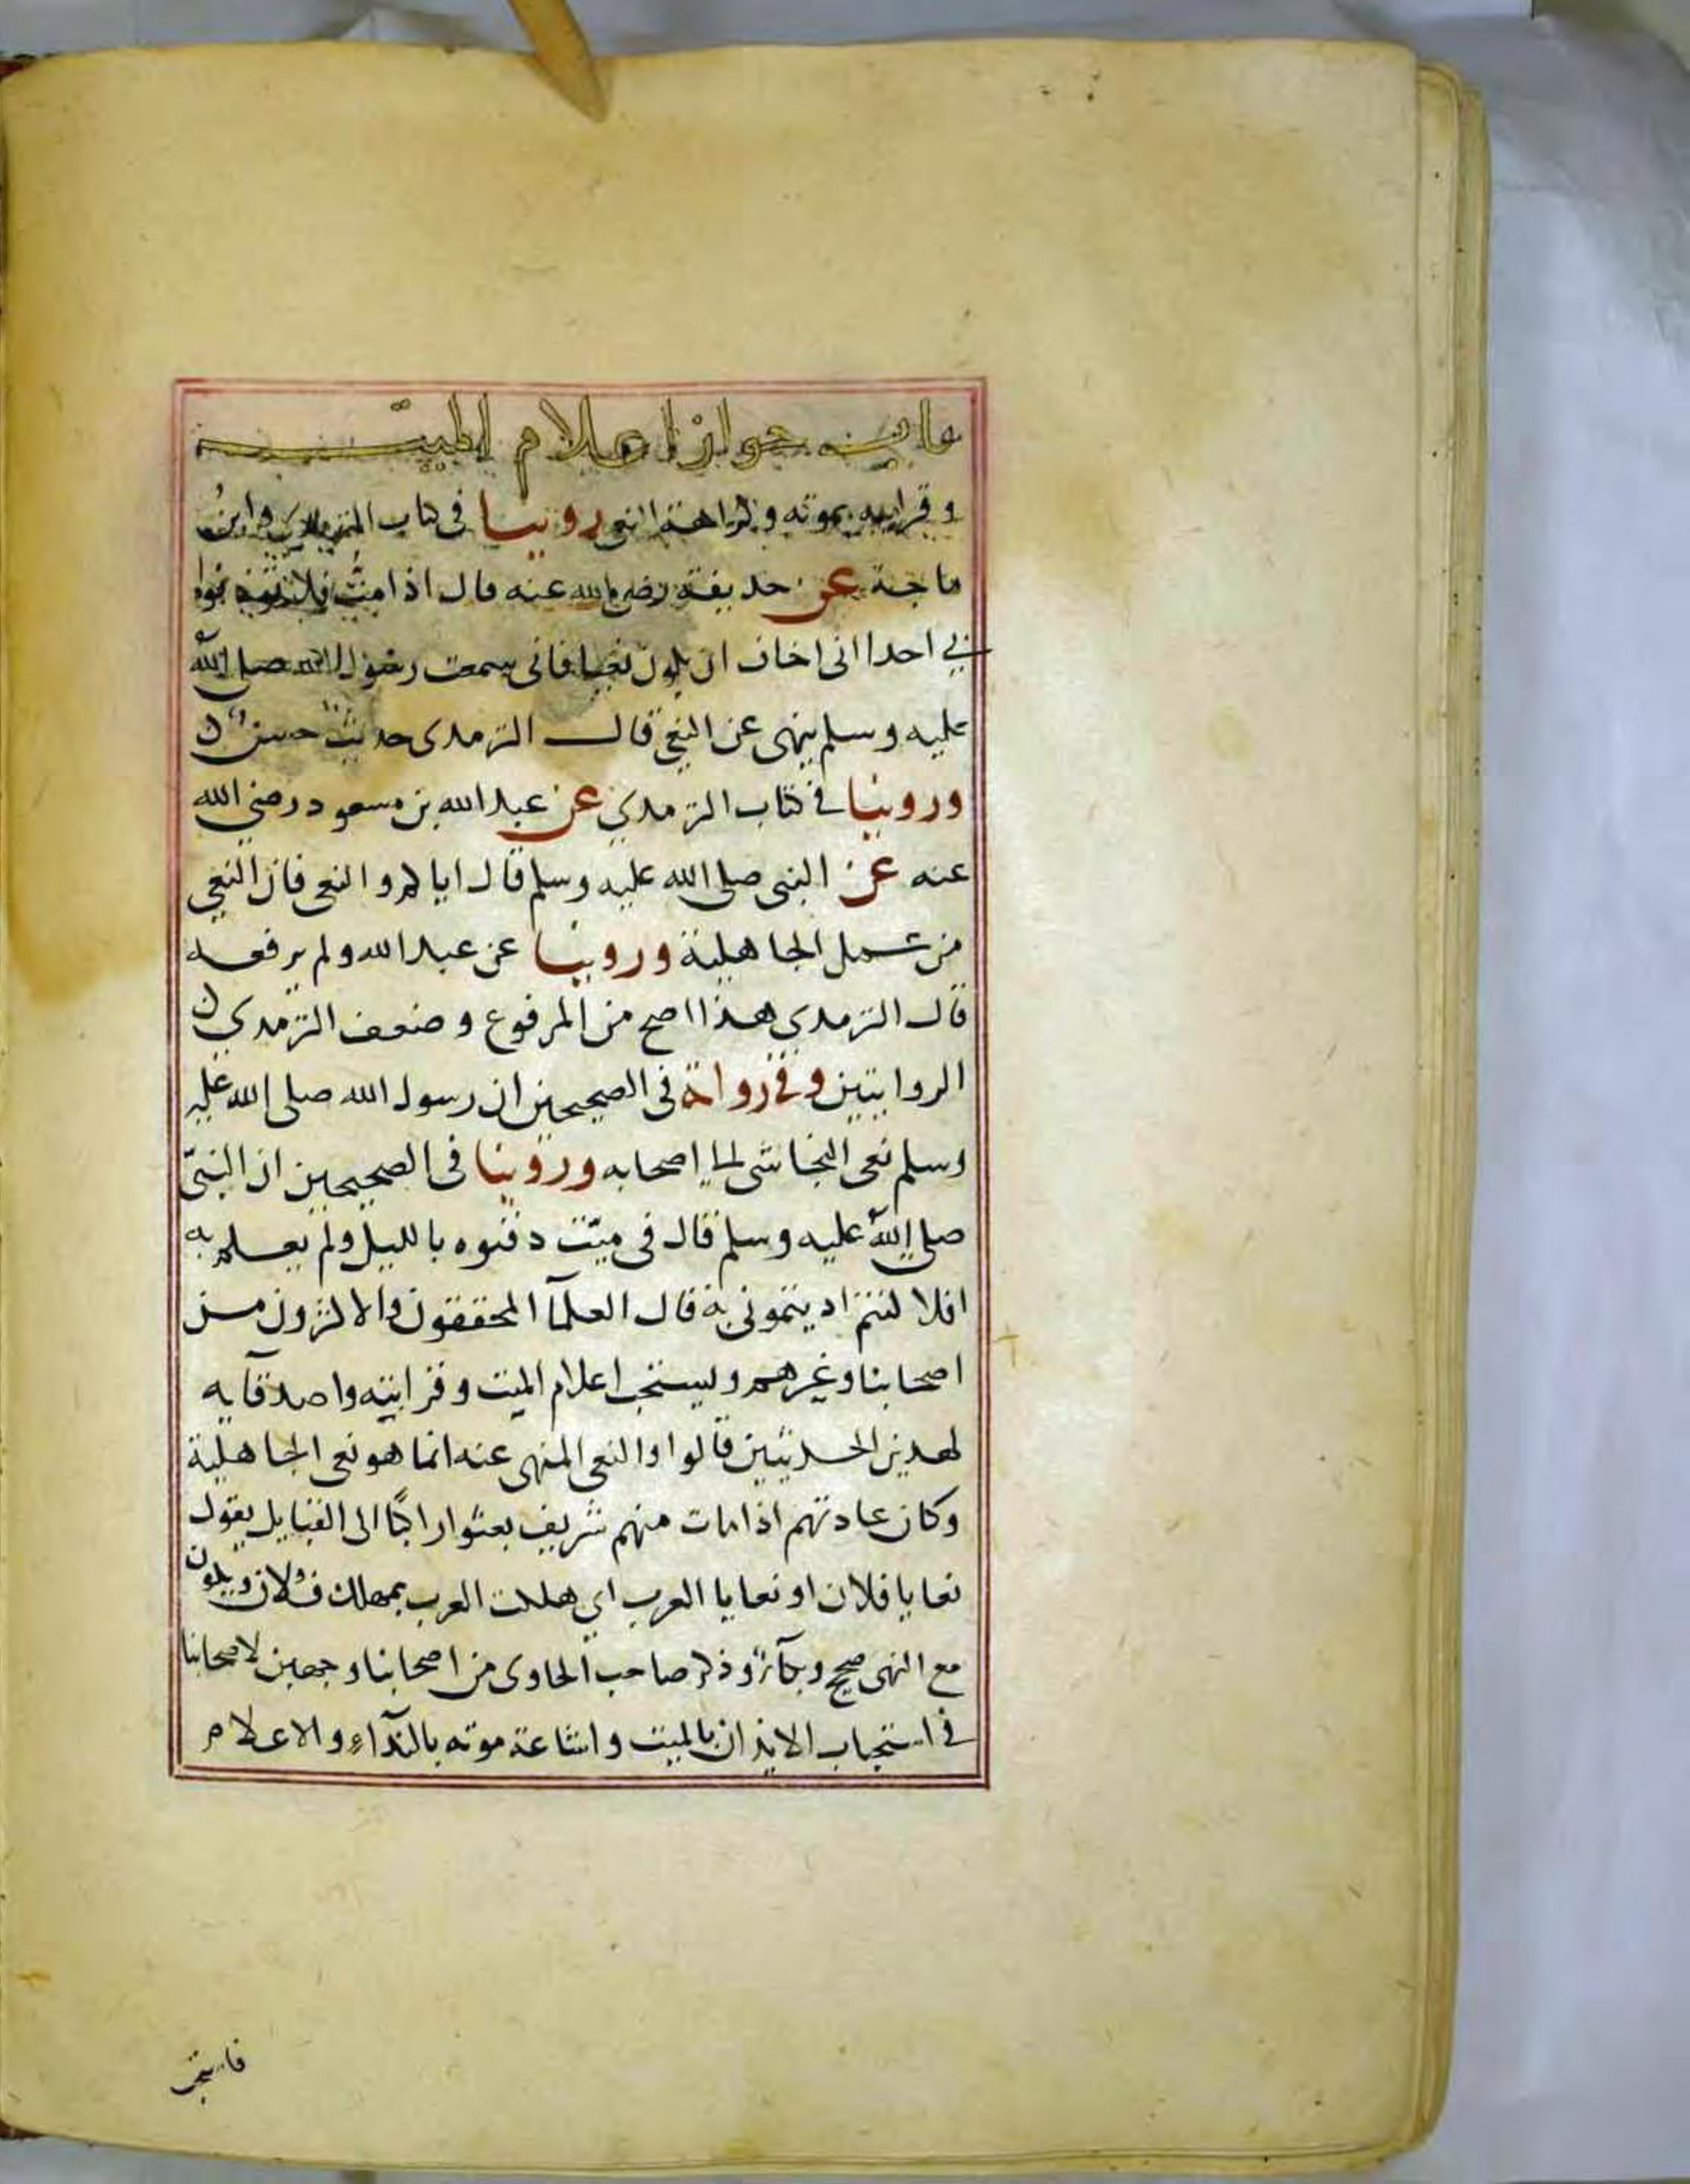 باب جواز اعلام الميت
و قرابيه بموته وكراهة النعى روينا فى كتاب الترمذى وابن
ماجة عن حديفة رضى الله عنه قال اذا مت فلا توذنوا
بي احدا انى اخاف ان يكون نعيا فانى سمعت رسول الله صلى الله
عليه وسلم ينهى عن النعى قال الترمدى حديث حسن
وروينا في كتاب الترمدي عن عبد الله بن مسعود رضي الله
عنه عن النبى صلى الله عليه وسلم قال اياكم و النعى فان النعى
من عمل الجاهلية وروينا عن عبد الله ولم يرفعه
قال الترمدى هذا اصح من المرفوع وضعف الترمدي
الروايتين وفى رواية فى الصحيحين ان رسول الله صلى الله عليه
وسلم نعى النجاشى الي اصحابه وروينا فى الصحيحين ان النبيّ
صلى الله عليه وسلم قال فى ميّت دفنوه بالليل ولم يعلم به
افلا كنتم اديتمونى به قال العلمآ المحققون والاكثرون من
اصحابنا وغيرهم ويستحب اعلام الميت وقرابته واصدقآيه
لهدين الحديثين قالوا والنعى المنهى عنه انما هو نعى الجاهلية
وكان عادتهم اذا مات منهم شريف بعثوا راكبًا الى القبايل يقول
نعايا فلان او نعايا العرب اي هلكت العرب بمهلك فلان ويكون
مع النهى ضجيج وبكآء وذكر صاحب الحاوى من اصحابنا وجهين لاصحابنا
في استحباب الايذان بالميت واشاعة موته بالندآء والاعلام
فاستحب